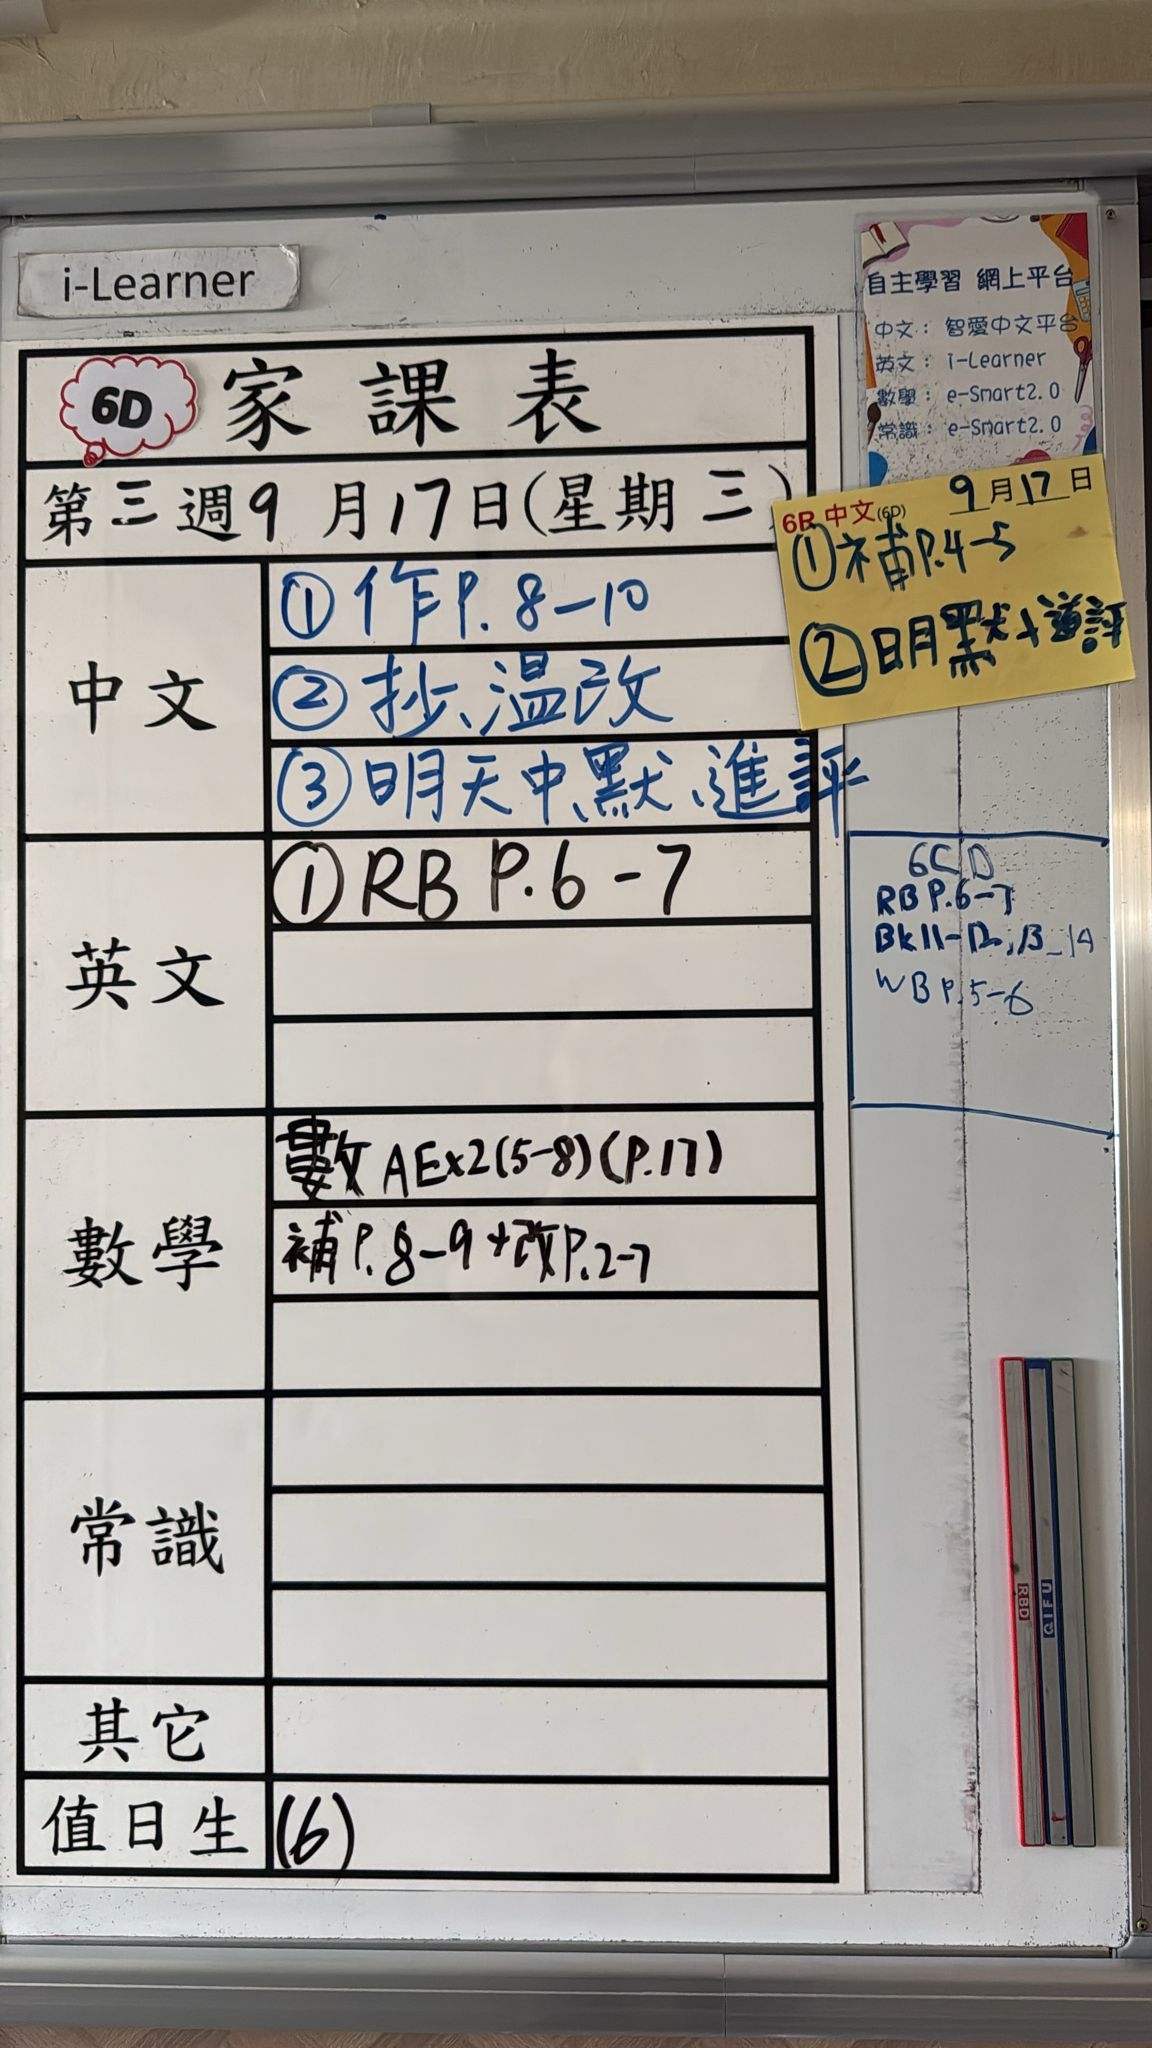 i-Learner
6D 家課表
第三週9月17日(星期三)
中文
①作P.8-10
②抄、溫改
③明天中默、進評
英文
①RB P.6-7
數學
數AEx2(5-8)(P.17)
補P.8-9+改P.2-7
常識
其它
值日生 (6)
自主學習 網上平台
中文：智愛中文平台
英文：i-Learner
數學：e-Smart2.0
常識：e-Smart2.0
6R 中文(6D) 9月17日
①補P.4-5
②明默+進評
6C D
RB P.6-7
WB P.5-6
RBD
QIFU